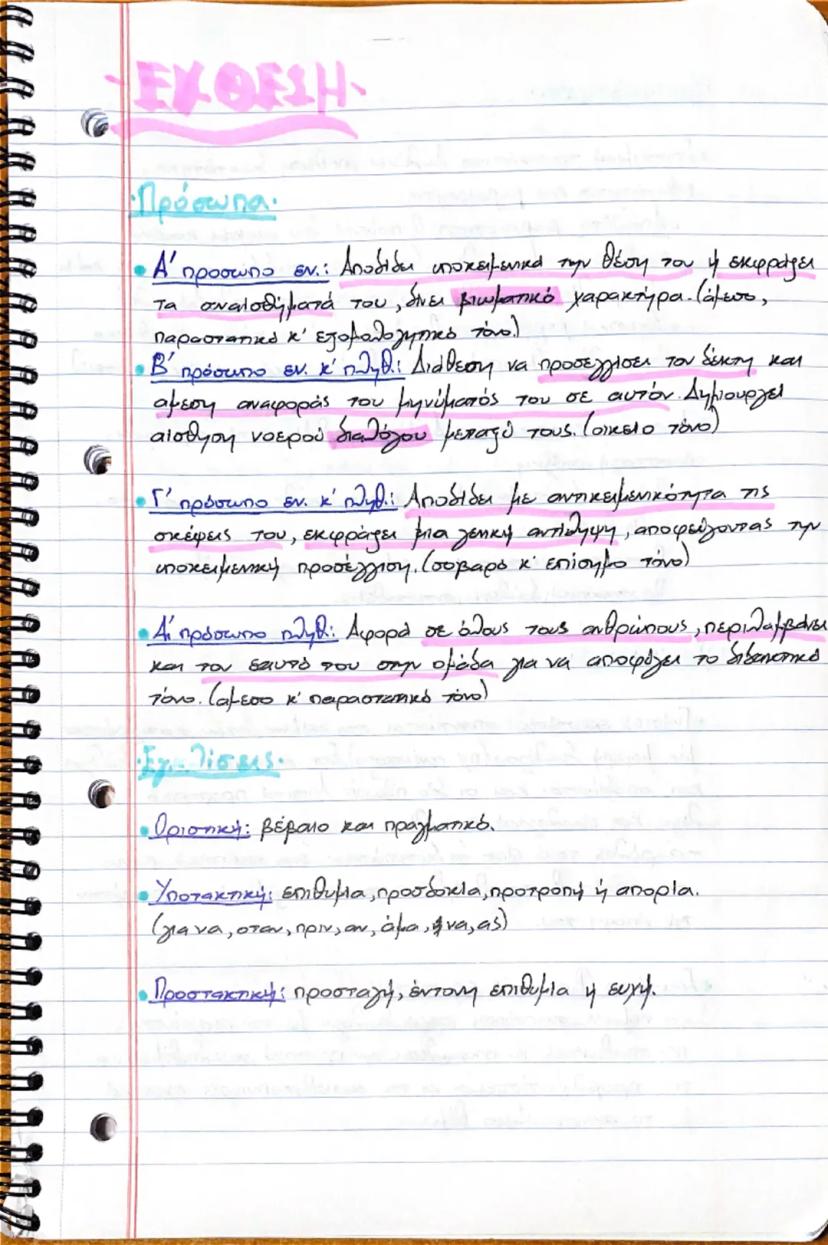 ·ΕΚΘΕΣΗ·
·Πρόσωπα·
• Α' προσωπο εν.: Αποδίδει υποκειμενικά την θέση του ή εκφράζει
τα συναισθήματά του, δίνει βιωματικό χαρακτήρα. (άμεσο,
παραστατικό κ' εξομολογητικό τόνο)
• Β' πρόσωπο εν. κ' πληθ.: Διάθεση να προσεγγίσει τον δέκτη και
αμεση αναφοράς του μηνύματός του σε αυτόν. Δημιουργεί
αίσθηση νοερού διαλόγου μεταξύ τους. (οικείο τόνο)
• Γ' πρόσωπο εν. κ' πληθ.: Αποδίδει με αντικειμενικότητα τις
σκέψεις του, εκφράζει μια γενική αντίληψη, αποφεύγοντας την
υποκειμενική προσέγγιση. (σοβαρό κ' επίσημο τόνο)
• Α' πρόσωπο πληθ.: Αφορά σε όλους τους ανθρώπους, περιλαμβάνει
και τον εαυτό του στην ομάδα για να αποφύγει το διδακτικό
τόνο. (αμεσο κ' παραστατικό τόνο)
·Εγκλίσεις·
• Οριστική: βέβαιο και πραγματικό.
• Υποτακτική: επιθυμία, προσδοκία, προτροπή ή απορία.
(για να, οταν, πριν, αν, άμα, να, ας)
• Προστακτική: προσταγή, έντονη επιθυμία ή ευχή.